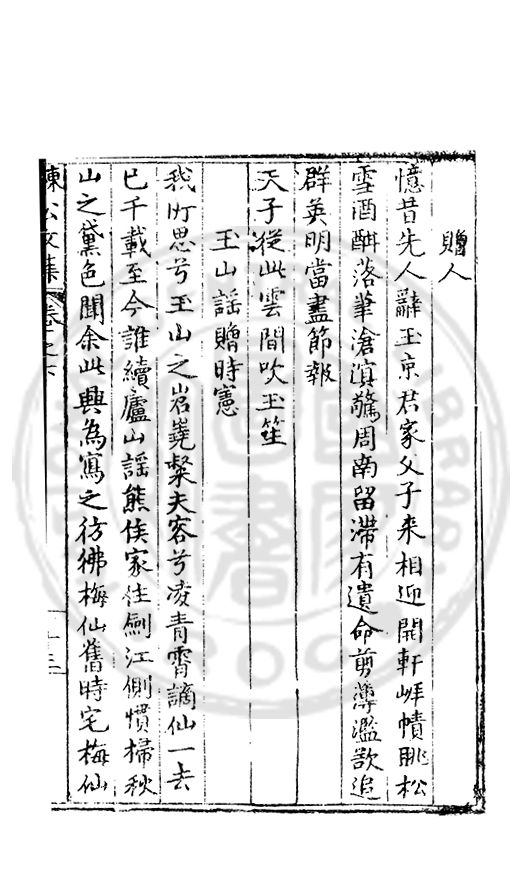 贈人
憶昔先人辭玉京君家父子来相迎開軒岸幘眺松
雪酒酣落筆滄溟驚周南留滯有遺命剪薄濫欲追
群英明當盡節報
天子從此雲間吹玉笙
玉山謡贈時憲
我所思兮玉山之岧嶤粲夫容兮凌青霄謫仙一去
已千載至今誰續廬山謡熊侯家住劍江側慣掃秋
山之黛色聞余此興為寫之彷彿梅仙舊時宅梅仙
陳公文集 卷之 十三